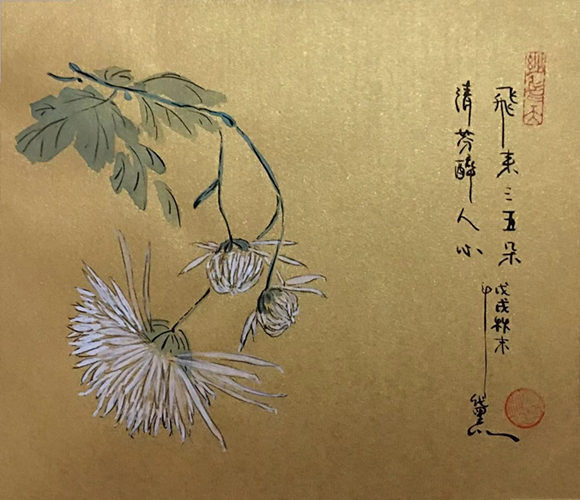 飛来三五朵
清芳醉人心
戊戌秋末
黛